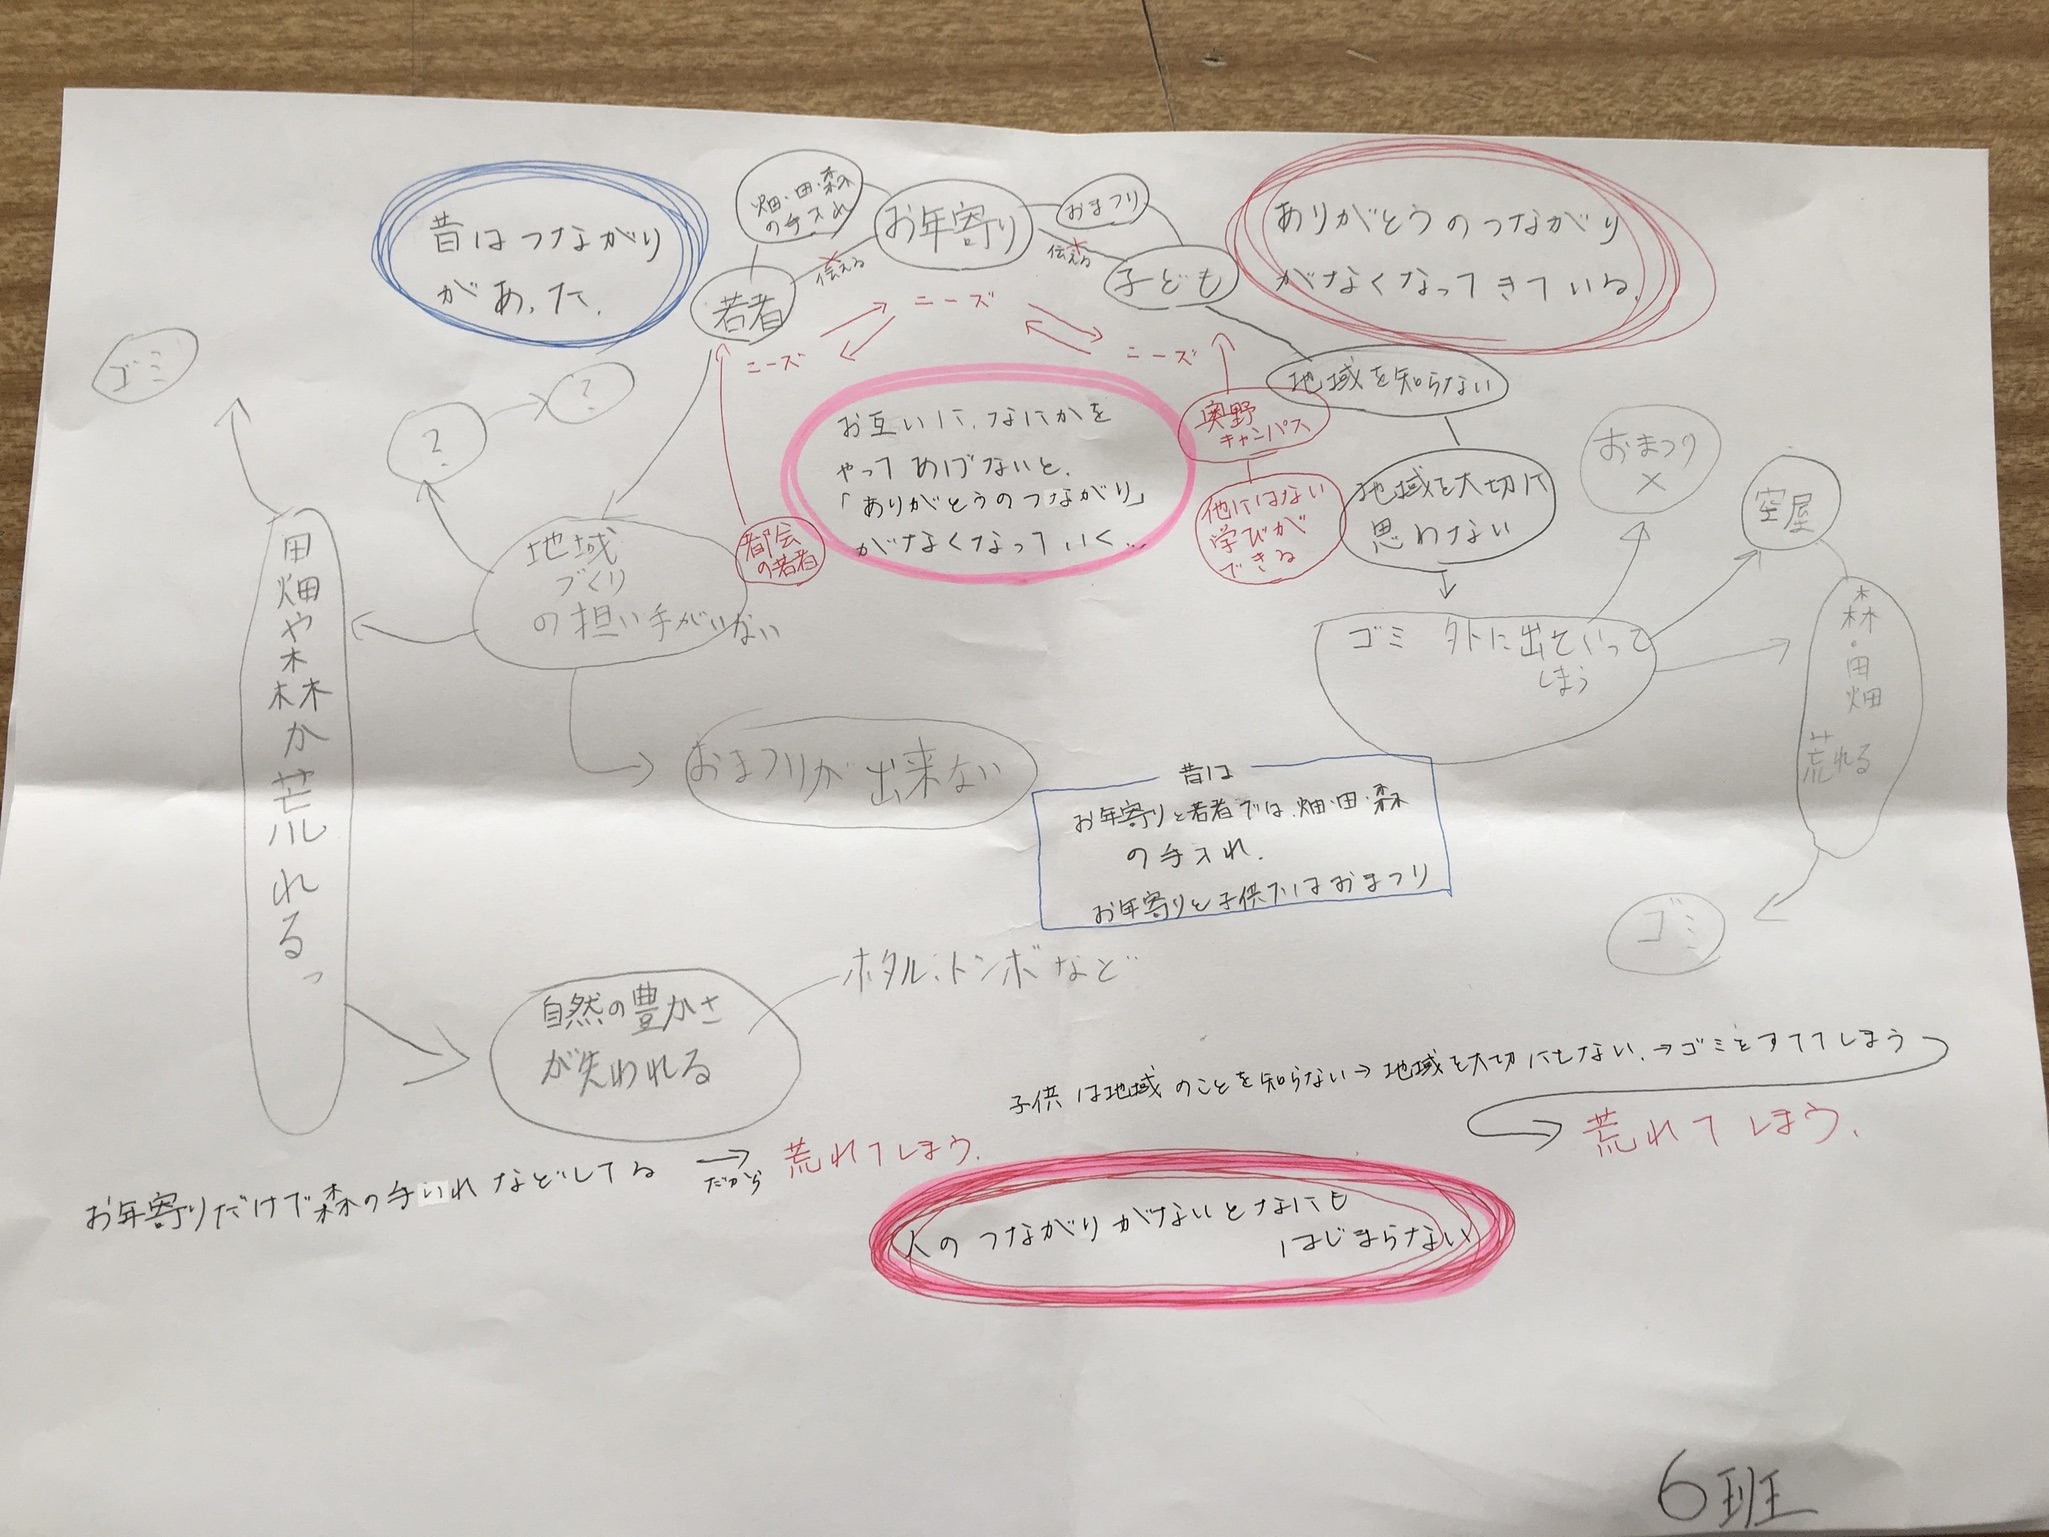 昔はつながり
があった.
畑・田・森
の手入れ
お年寄り
おまつり
伝える
伝える
若者
子ども
ありがとうのつながり
がなくなってきている.
ニーズ
ニーズ
ニーズ
ゴミ
?
?
お互いに、なにかを
やってあげないと、
「ありがとうのつながり」
がなくなっていく…
奥野
キャンパス
他にはない
学びが
できる
地域を知らない
地域を大切に
思わない
おまつり
×
空屋
都会
の若者
地域
づくり
の担い手がいない
田畑や森が荒れる
ゴミ 外に出ていって
しまう
森・田畑
荒れる
おまつりが出来ない
昔は
お年寄りと若者では、畑・田・森
の手入れ.
お年寄りと子供ではおまつり
ゴミ
自然の豊かさ
が失われる
ホタル、トンボなど
子供は地域のことを知らない→地域を大切にしない.→ゴミをすててしまう
荒れてしまう.
お年寄りだけで森の手いれなどしてる
だから
荒れてしまう.
人のつながりがないとなにも
はじまらない
6班